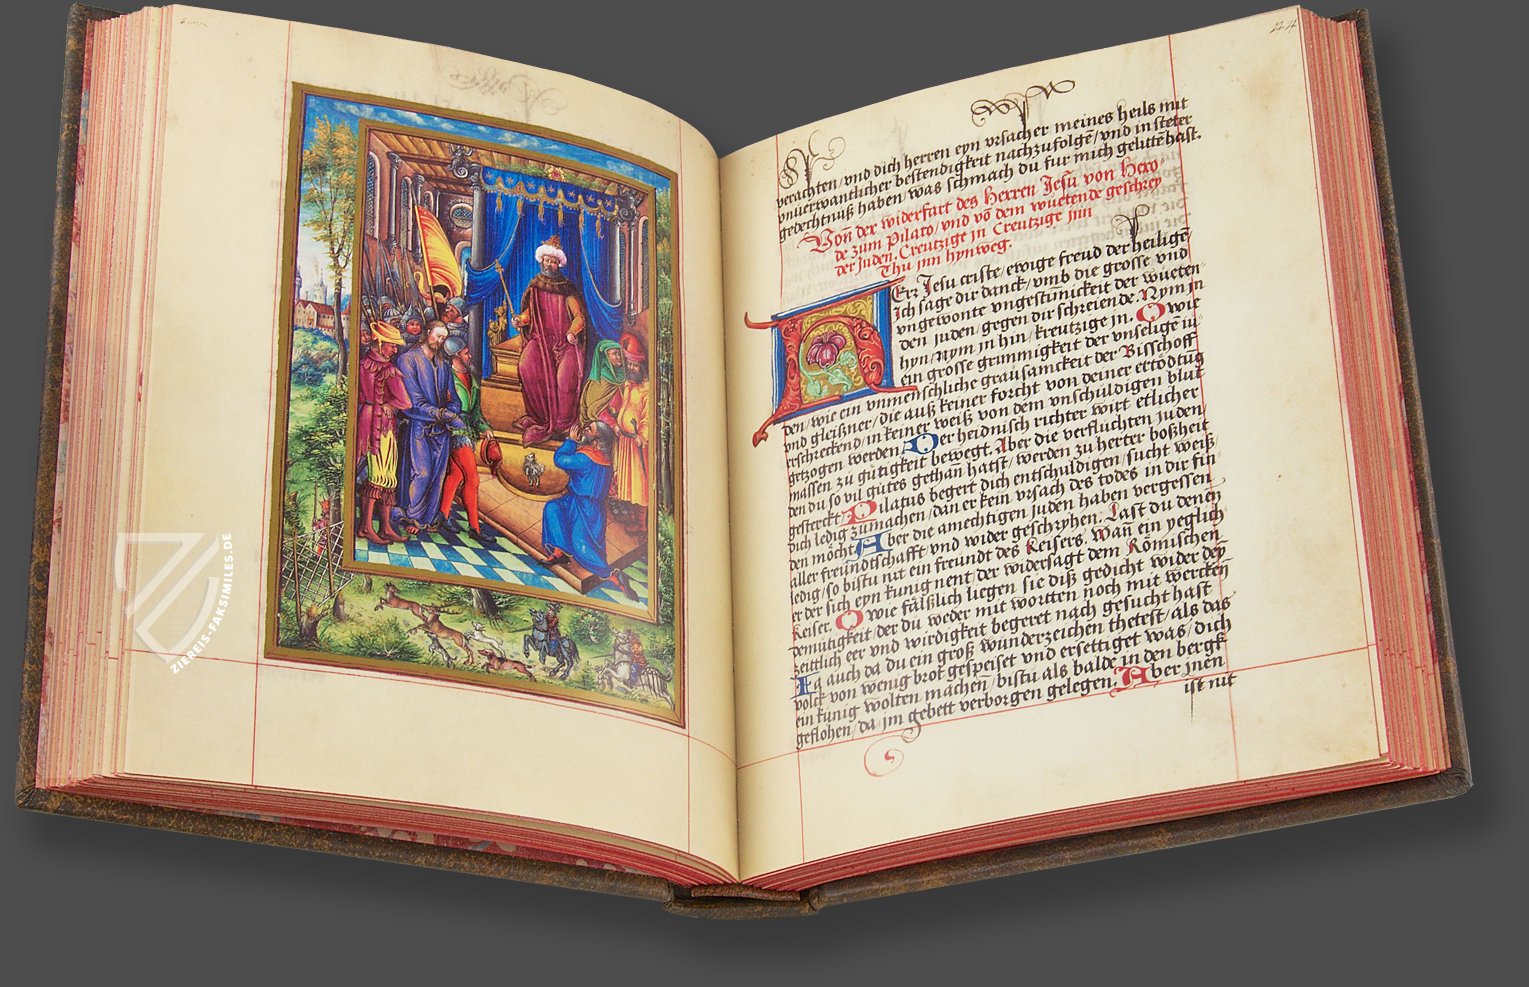 verachten/vnd dich herren eyn vrsacher meines heils mit
vnuerwantlicher bestendigkeit nachzufolgē/vnd in steter
gedechtnuß haben/was schmach du fur mich gelittē hast.
Von der widerfart des Herren Jesu von Hero⸗
de zum Pilato/vnd vō dem wuetende geschrey
der Juden, Creutzige jn Creutzige jnn
Thu jnn hynweg.
Err Jesu criste/ewige freud der heiligē/
Ich sage dir danck/vmb die grosse vnd
vngewonte vngestūmickeit der wueten⸗
den juden/gegen dir schreiende. Nym jn
hyn/nym jn hin/kreutzige jn. O wie
ein grosse grummigkeit der vnselige jů⸗
den/wie ein vnmenschliche grausamckeit der Bisschoff
vnd gleißner/die auß keiner forcht von deiner ertödtūg
erschreckend/in keiner weiß von dem vnschuldigen blut
getzogen werden. Der heidnisch richter wirt etlicher
massen zu gůtigkeit bewegt. Aber die verfluchten juden
den du so vil gůtes gethan hatst/werden zu herter boßheit
gesterckt. Pilatus begert dich entschuldigen/sucht weiß/
dich ledig zůmachen/dan er kein vrsach des todes in dir fin⸗
den mocht. Aber die amechtigen juden haben vergessen
aller freundtschafft/vnd wider geschryhen. Last du denen
ledig/so bistu nit ein freundt des Keisers. Wan ein yeglich
er der sich eyn kunig nent/der widersagt dem Römischen
Keiser. O wie fälßlich liegen sie diß gedicht wider dey
demutigkeit/der du weder mit wortten noch mit wercken
zeittlich eer vnd wirdigkeit begeret nach gesucht hast
Ja auch da du ein groß wunderzeichen thetest/als das
volck von wenig brot gespeiset vnd ersettiget was/dich
ein kunig wolten machen/bistu als balde in den bergk
geflohen/da jm gebett verborgen gelegen. Aber jnen
ist nit
ZIEREIS-FAKSIMILES.DE